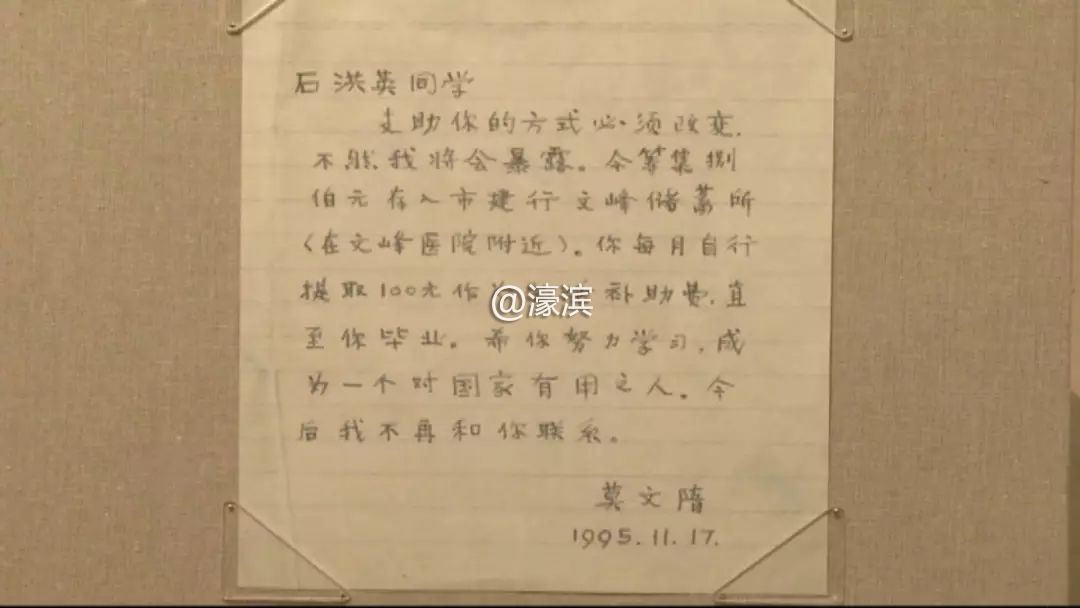 石洪英同学
支助你的方式必须改变,
不然我将会暴露。今筹集捌
佰元存入市建行文峰储蓄所
(在文峰医院附近)。你每月自行
提取100元作 补助费,直
@濠滨
至你毕业。希你努力学习,成
为一个对国家有用之人。今
后我不再和你联系。
莫文隋
1995.11.17.